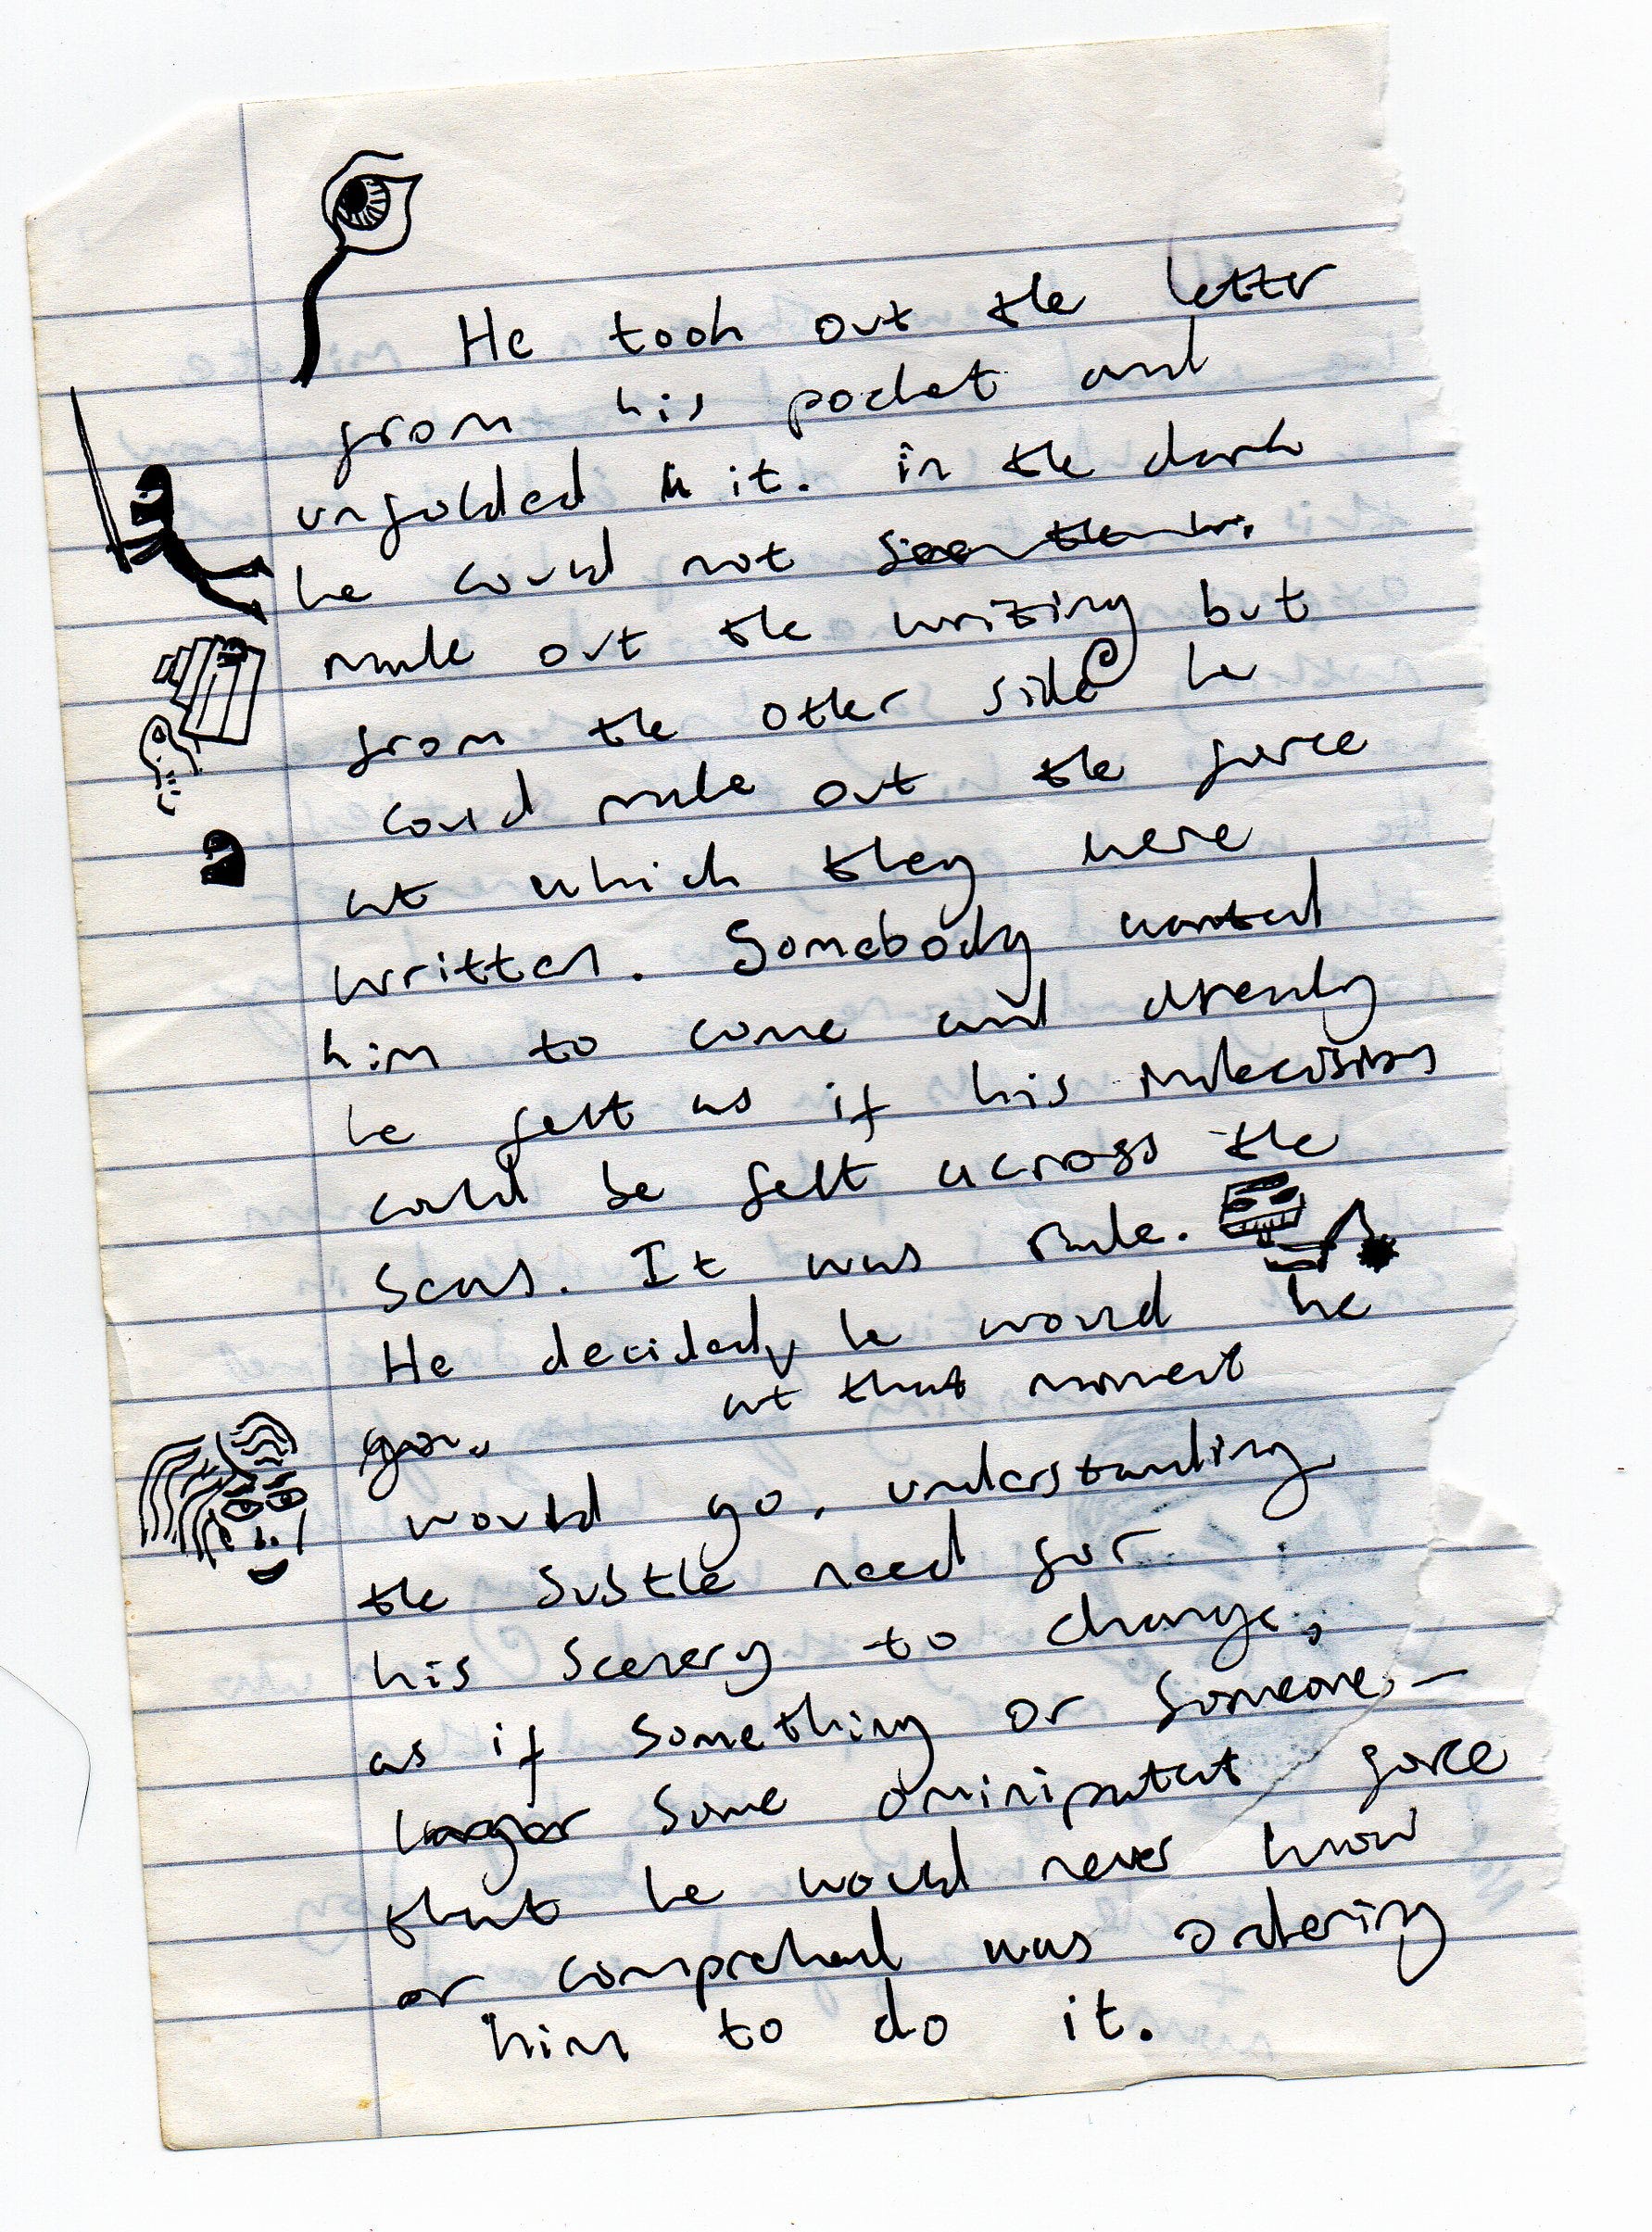 He took out the letter
from his pocket and
unfolded it. in the dark
he could not
make out the writing but
from the other side he
could make out the force
at which they were
written. Somebody wanted
him to come and already
he felt as if his indecisions
could be felt across the
seas. It was rude.
He decided, he would he
at that moment
go.
would go, understanding
the subtle need for
his scenery to change;
as if something or someone, —
larger some ominipotent force
that he would never know
or comprehend was ordering
him to do it.